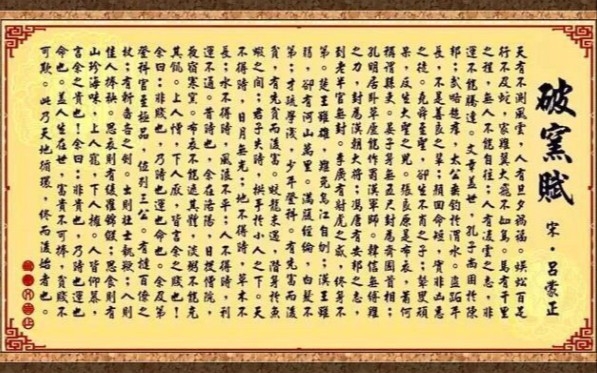 破窯賦
宋·呂蒙正
天有不測風雲，人有旦夕禍福。蜈蚣百足
行不及蛇，家雞翼大飛不如鳥。馬有千里
之程，無人不能自往；人有凌雲之志，非
運不能騰達。文章蓋世，孔子尚困於陳
邦；武略超群，太公垂釣於渭水。盜跖年
長，不是善良之輩；顏回命短，實非凶惡
之徒。堯舜至聖，卻生不肖之子；瞽叟頑
呆，反生大聖之兒。張良原是布衣，蕭何
稱謂縣吏。晏子身無五尺，封為齊國首相；
孔明居臥草廬，能作蜀漢軍師。韓信無縛雞
之力，封為漢朝大將；馮唐有安邦之志，
到老半官無封；李廣有射虎之威，終身不
第。楚王雖雄，難免烏江自刎；漢王雖
弱，卻有河山萬里。滿腹經綸，白髮不
第；才疏學淺，少年登科。有先富而後
貧，有先貧而後富。蛟龍未遇，潛身於魚
蝦之間；君子失時，拱手於小人之下。天
不得時，日月無光；地不得時，草木不
長；水不得時，風浪不平；人不得時，利
運不通。昔時也，余在洛陽，日投僧院，
夜宿寒窯。布衣不能遮其體，淡粥不能充
其飢。上人憎，下人厭，皆言余之賤也！
余曰：非賤也，乃時也運也命也。余及第
登科，官至極品，位列三公。有撻百僚之
杖，有斬鄙吝之劍。出則壯士執鞭，入則
佳人捧秧。思衣則有綾羅錦緞，思食則有
山珍海味。上人寵，下人擁。人皆仰慕，
言余之貴也！余曰：非貴也，乃時也運也
命也。蓋人生在世，富貴不可捧，貧賤不
可欺。此乃天地循環，終而復始者也。